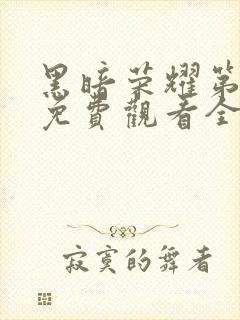 黑暗荣耀第
免費觀看全
寂寞的舞者